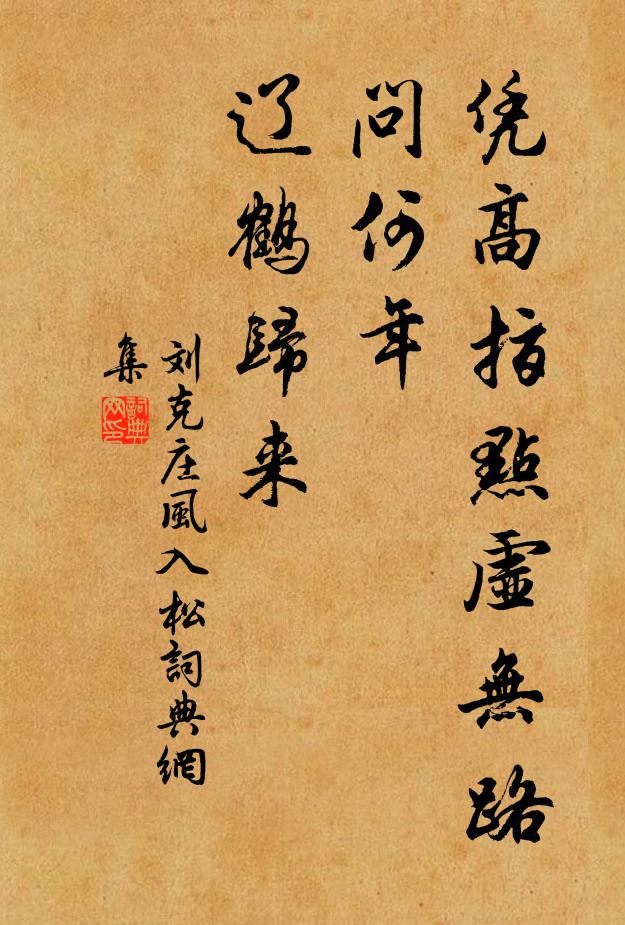 凭高指點虛無路
問何年
辽鶴歸来
刘克庄風入松詞典網
集
詞典
网印